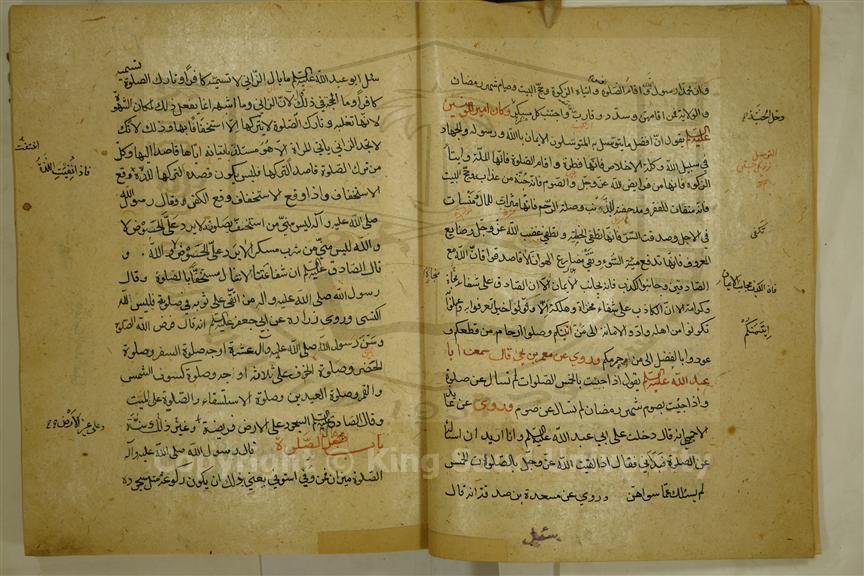 وان محمدا رسول الله واقام الصلوة وايتاء الزكوة وحج البيت وصيام شهر رمضان
والولاية فمن اقامهن وسدد وقارب واجتنب كل مسكر وكان امير المؤمنين
عليه السلام يقول ان افضل ما يتوسل به المتوسلون الايمان بالله ورسوله والجهاد
في سبيل الله وكلمة الاخلاص فانها الفطرة واقام الصلوة فانها الملة وايتاء
الزكوة فانها من فرائض الله عز وجل والصوم فانه جنة من عذابه وحج البيت
فانه منفاة للفقر ومدحضة للذنب وصلة الرحم فانها مثراة للمال منساة
في الاجل وصدقة السر فانها تطفئ الخطيئة وتطفئ غضب الله عز وجل وصنايع
المعروف فانها تدفع ميتة السوء وتقي مصارع الهوان الا فاصدقوا فان الله مع
الصادقين وجانبوا الكذب فانه يجانب الايمان الا ان الصادق على شفا منجاة
وكرامة الا ان الكاذب على شفا مخزاة وهلكة الا وقولوا خيرا تعرفوا به واعملوا به
تكونوا من اهله وادوا الامانة الى من ائتمنكم وصلوا ارحام من قطعكم و
عودوا بالفضل الى من حرمكم وروي عن معمر بن يحيى قال سمعت ابا
عبد الله عليه السلام يقول اذا جئت بالخمس الصلوات لم تسأل عن صلوة
واذا جئت بصوم شهر رمضان لم تسأل عن صوم وروي عن عائذ
الاحمسي انه قال دخلت على ابي عبد الله عليه السلام وانا اريد ان اسأله
عن الصلوة فبدأني فقال اذا لقيت الله عز وجل بالصلوات الخمس
لم يسئلك عما سواهن وروي عن مسعدة بن صدقة انه قال
سئل
سئل ابو عبد الله عليه السلام ما بال الزاني لا تسميه كافرا وتارك الصلوة تسميه
كافرا وما الحجة في ذلك لان الزاني وما اشبهه انما يفعل ذلك لمكان الشهوة
لانها تغلبه وتارك الصلوة لا يتركها الا استخفافا بها وذلك لانك
لا تجد الزاني ياتي المراة الا وهو مستلذ باتيانه اياها قاصدا اليها وكل
من ترك الصلوة قاصدا لتركها فليس يكون قصده لتركها اللذة وقع
الاستخفاف واذا وقع الاستخفاف وقع الكفر وقال رسول الله
صلى الله عليه وآله ليس مني من استخف بصلوته لا يرد علي الحوض لا
والله ليس مني من شرب مسكرا لا يرد علي الحوض لا والله و
قال الصادق عليه السلام ان شفاعتنا لا تنال مستخفا بالصلوة وقال
رسول الله صلى الله عليه وآله من اتقى على ثوبه في صلوته فليس لله
اكتسى وروى زرارة عن ابي جعفر عليه السلام انه قال فرض الله الصلوة
وسن رسول الله صلى الله عليه وآله عشرة اوجه صلوة السفر وصلوة
الحضر وصلوة الخوف على ثلاثة اوجه وصلوة كسوف الشمس
والقمر وصلوة العيدين وصلوة الاستسقاء والصلوة على الميت
وقال الصادق عليه السلام السجود على الارض فريضة وعلى غير ذلك سنة
باب فضل الصلوة قال رسول الله صلى الله عليه وآله
الصلوة ميزان فمن وفى استوفى يعني بذلك ان يكون ركوعه مثل سجوده
فاذا نفيت اللذة
وعلى غير الارض
copyright © King Saud University